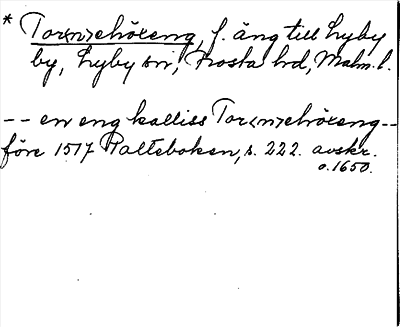 * Tor<n>ehöxeng, f. äng till Lyby
by, Lyby sn, Frosta hd, Malm. l.
-- en eng kalliss Tor<n>ehöxeng --
före 1517 Palteboken, s. 222. avskr.
o. 1650.